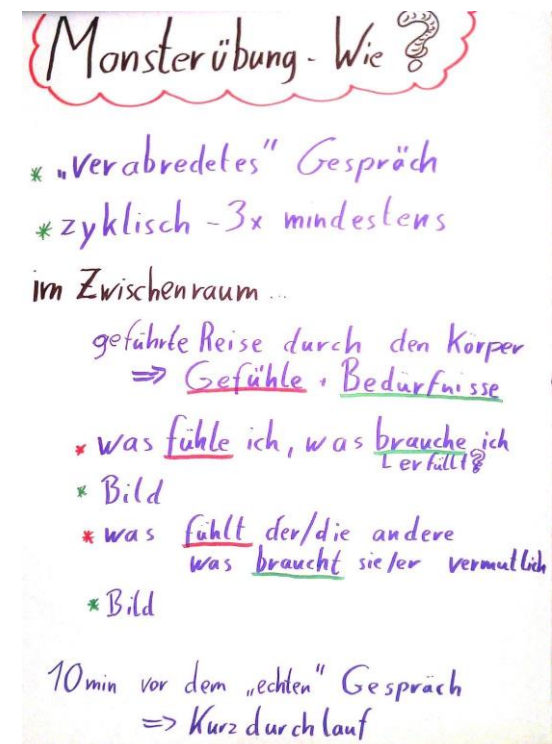 Monsterübung - Wie ?
* „verabredetes" Gespräch
* zyklisch - 3x mindestens
im Zwischenraum ...
geführte Reise durch den Körper
⇒ Gefühle + Bedürfnisse
* was fühle ich, was brauche ich
erfüllt?
* Bild
* was fühlt der/die andere
was braucht sie/er vermutlich
* Bild
10min vor dem „echten" Gespräch
⇒ Kurzdurchlauf